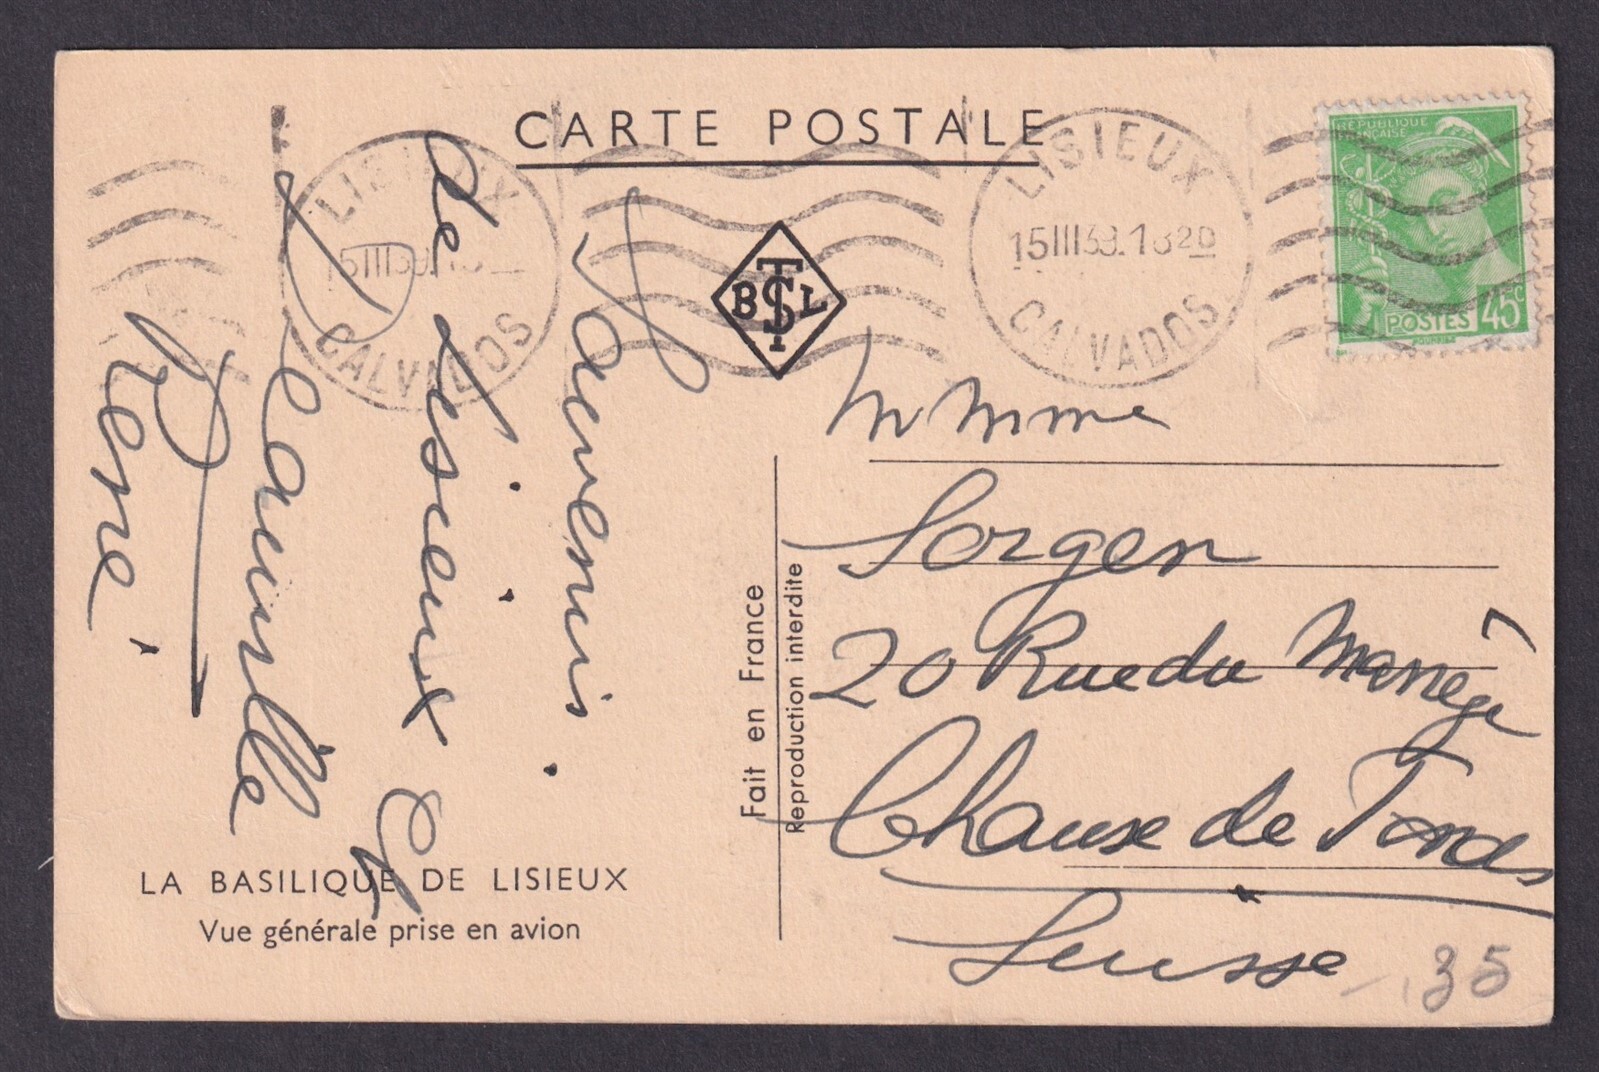 CARTE POSTALE
LISIEUX
CALVADOS
LISIEUX
15III39.1820
CALVADOS
RÉPUBLIQUE
FRANÇAISE
POSTES 45c
BTSL
Souvenir
de Lisieux &
Deauville
René
M Mme
Sorgen
20 Rue du Manège
Chause de Fonds
Suisse
35
Fait en France
Reproduction interdite
LA BASILIQUE DE LISIEUX
Vue générale prise en avion